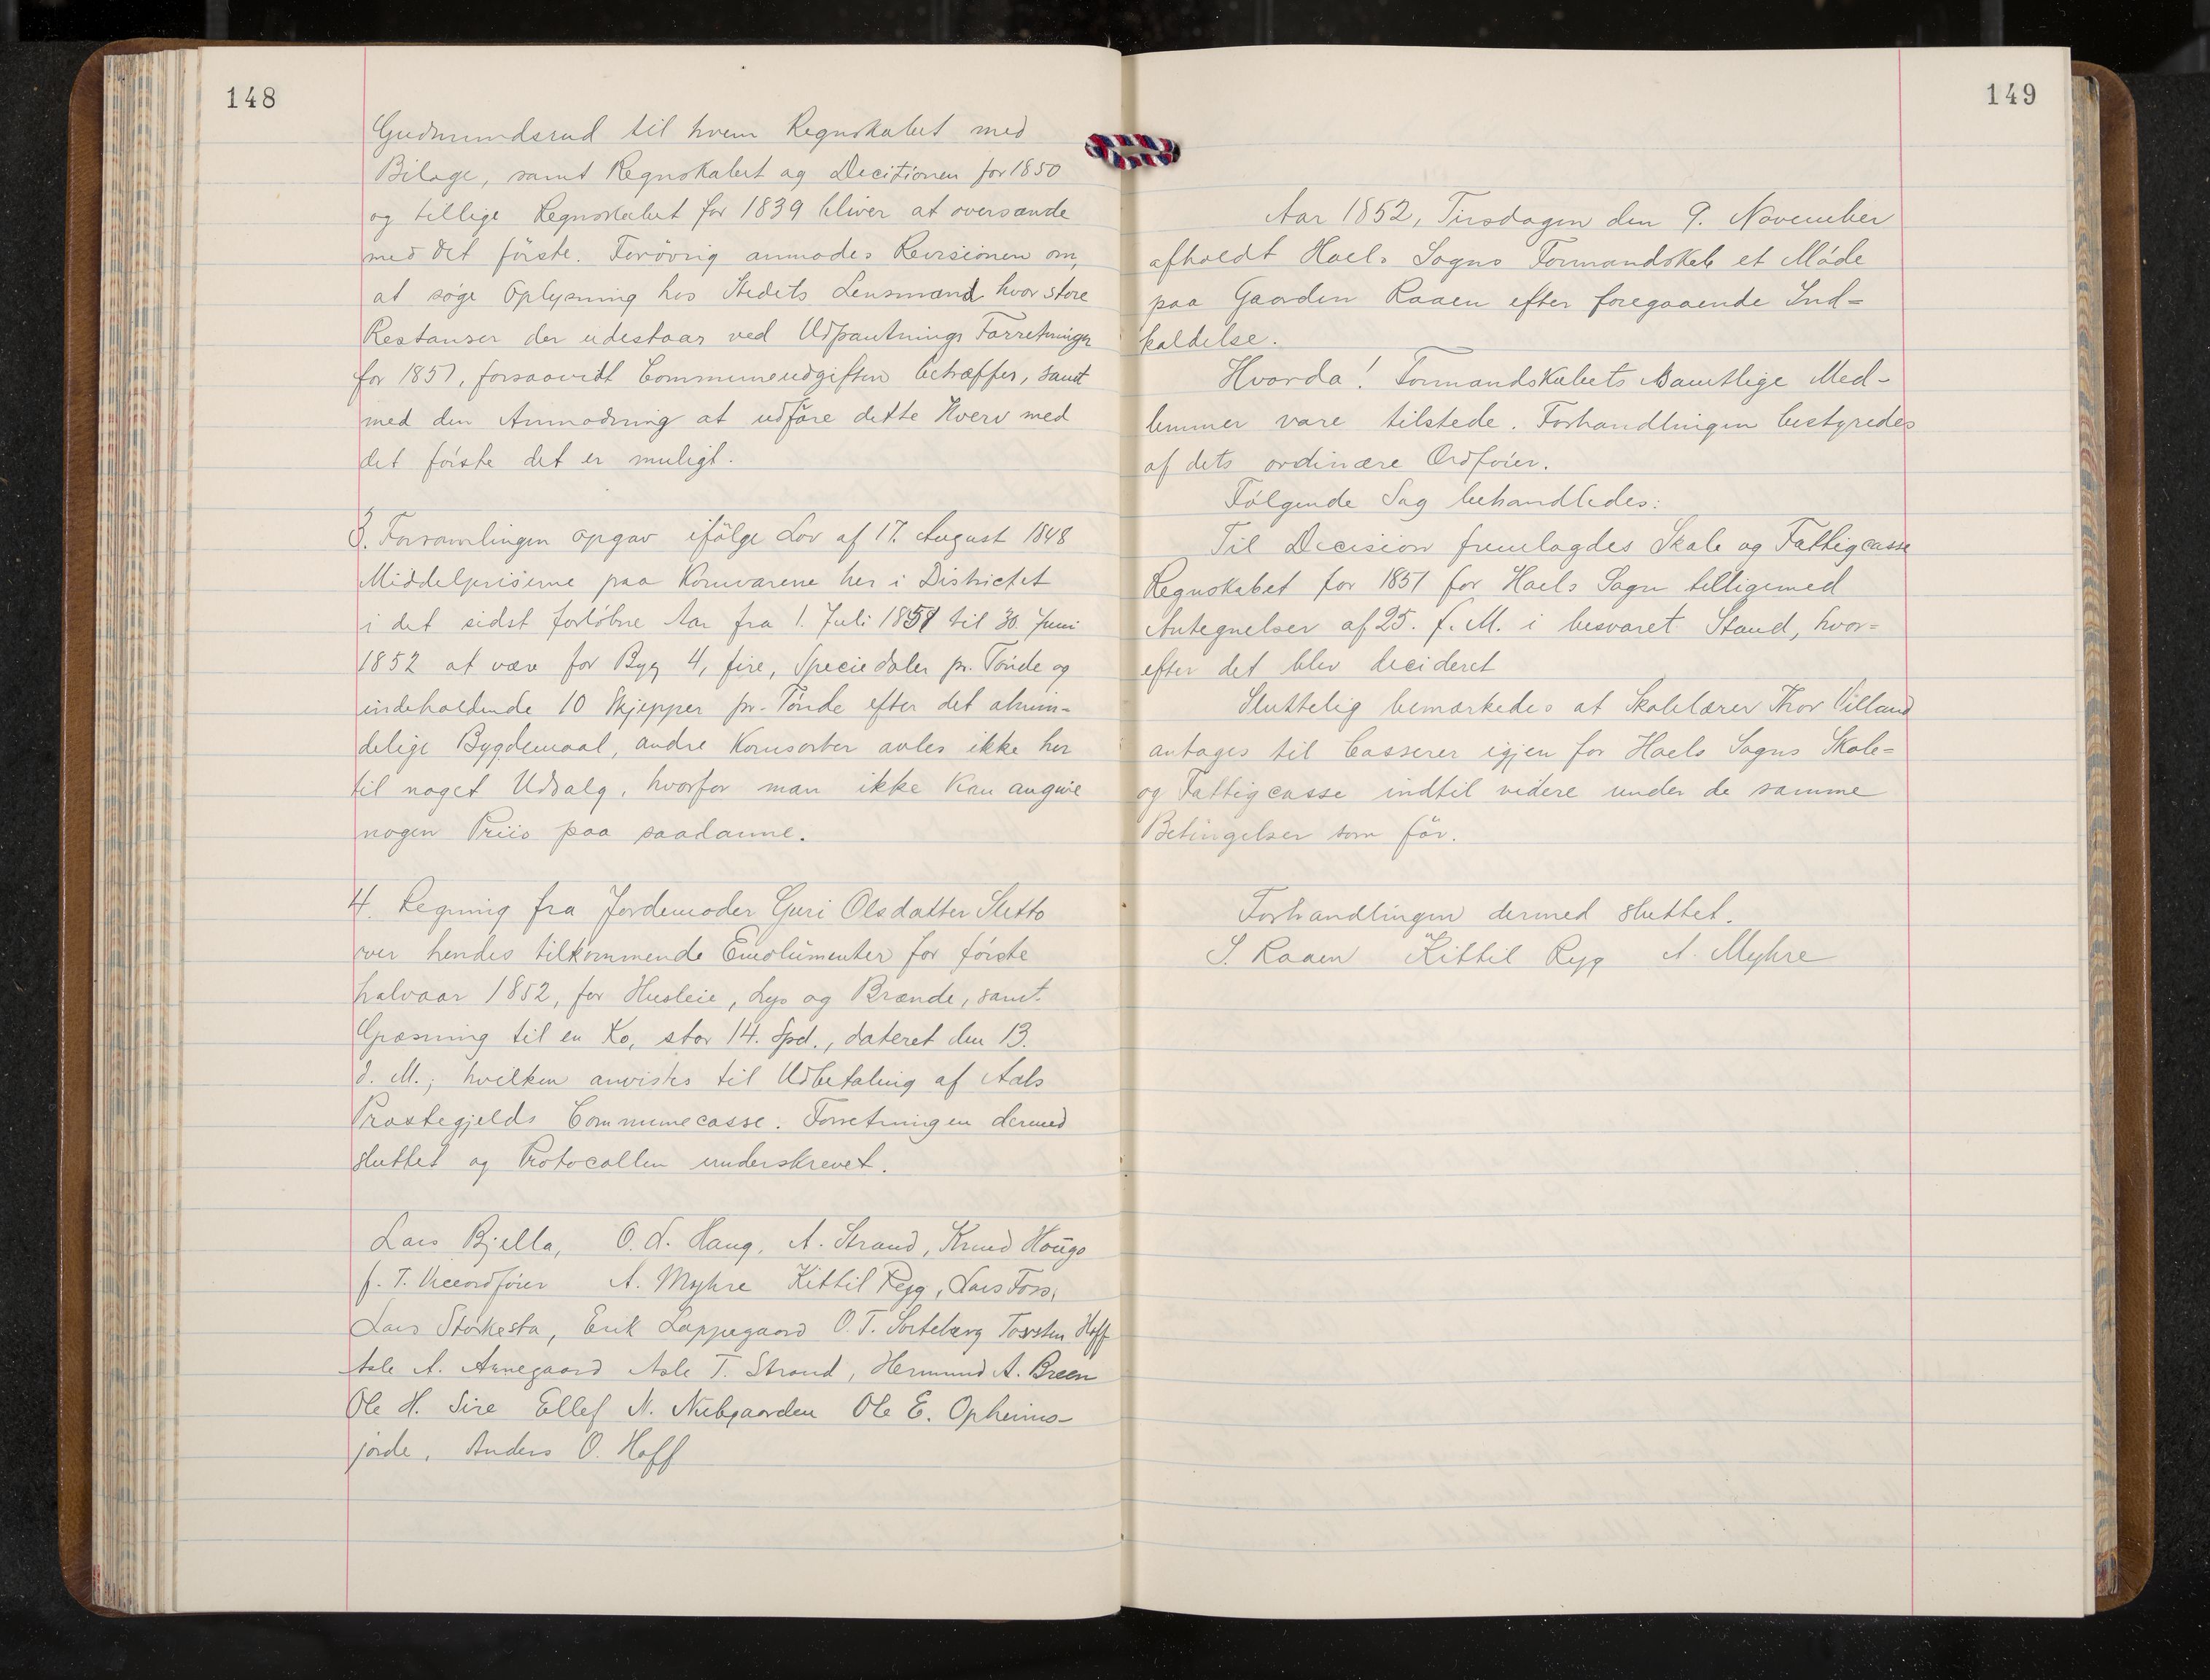 148
Gudmundsrud til hvem Regnskabet med
Bilage, samt Regnskabet og Decitionen for 1850
og tillige Regnskabet for 1839 bliver at oversænde
med det förste. Forövrig anmodes Revisionen om,
at söge Oplysning hos Stedets Lensmand hvor store
Restanser der udestaar ved Udpantnings Forretninger
for 1851, forsaavidt Communeudgiften betræffer, samt
med den Anmodning at udföre dette Hverv med
det förste det er muligt.
3. Forsamlingen opgav ifölge Lov af 17. August 1848
Middelpriserne paa Kornvarene her i Districtet
i det sidst forlöbne Aar fra 1. Juli 1851 til 30. Juni
1852 at være for Byg 4, fire, Speciedaler pr. Tönde og
indeholdende 10 Skjepper pr. Tönde efter det almin-
delige Bygdemaal, andre Kornsorter avles ikke her
til noget Udsalg, hvorfor man ikke kan angive
nogen Priis paa saadanne.
4. Regning fra Jordemoder Guri Olsdatter Sletto
over hendes tilkommende Emolumenter for förste
halvaar 1852, for Husleie, Lys og Brænde, samt
Græsning til en Ko, stor 14. Spd., dateret den 13.
d. M.; hvilken anvistes til Udbetaling af Aals
Præstegjelds Communecasse. Forretningen dermed
sluttet og Protocollen underskrevet.
Lars Bjella, O. A. Haug, A. Strand, Knud Hougo
f. T. Viceordförer A. Myhre Kittil Rygg, Lars Foss,
Lars Störkesta, Erik Lappegaard O. T. Sorteberg Torsten Hoff
Asle A. Arnegaard Asle T. Strand, Hermund A. Breen
Ole H. Sire Ellef N. Nubgaarden Ole E. Opheims-
jorde, Anders O. Hoff
149
Aar 1852, Tirsdagen den 9. November
afholdt Hoels Sogns Formandskab et Möde
paa Gaarden Raaen efter foregaaende Ind-
kaldelse.
Hvorda! Formandskabets samtlige Med-
lemmer vare tilstede. Forhandlingen bestyredes
af dets ordinære Ordförer.
Fölgende Sag behandledes:
Til Decision fremlagdes Skole og Fattigcasse
Regnskabet for 1851 for Hoels Sogn tilligemed
Antegnelser af 25. f. M. i besvaret Stand, hvor-
efter det blev decideret
Sluttelig bemærkedes at Skolelærer Thor Villand
antages til Casserer igjen for Hoels Sogns Skole-
og Fattigcasse indtil videre under de samme
Betingelser som för.
Forhandlingen dermed sluttet.
S. Raaen Kittil Ryg A. Myhre